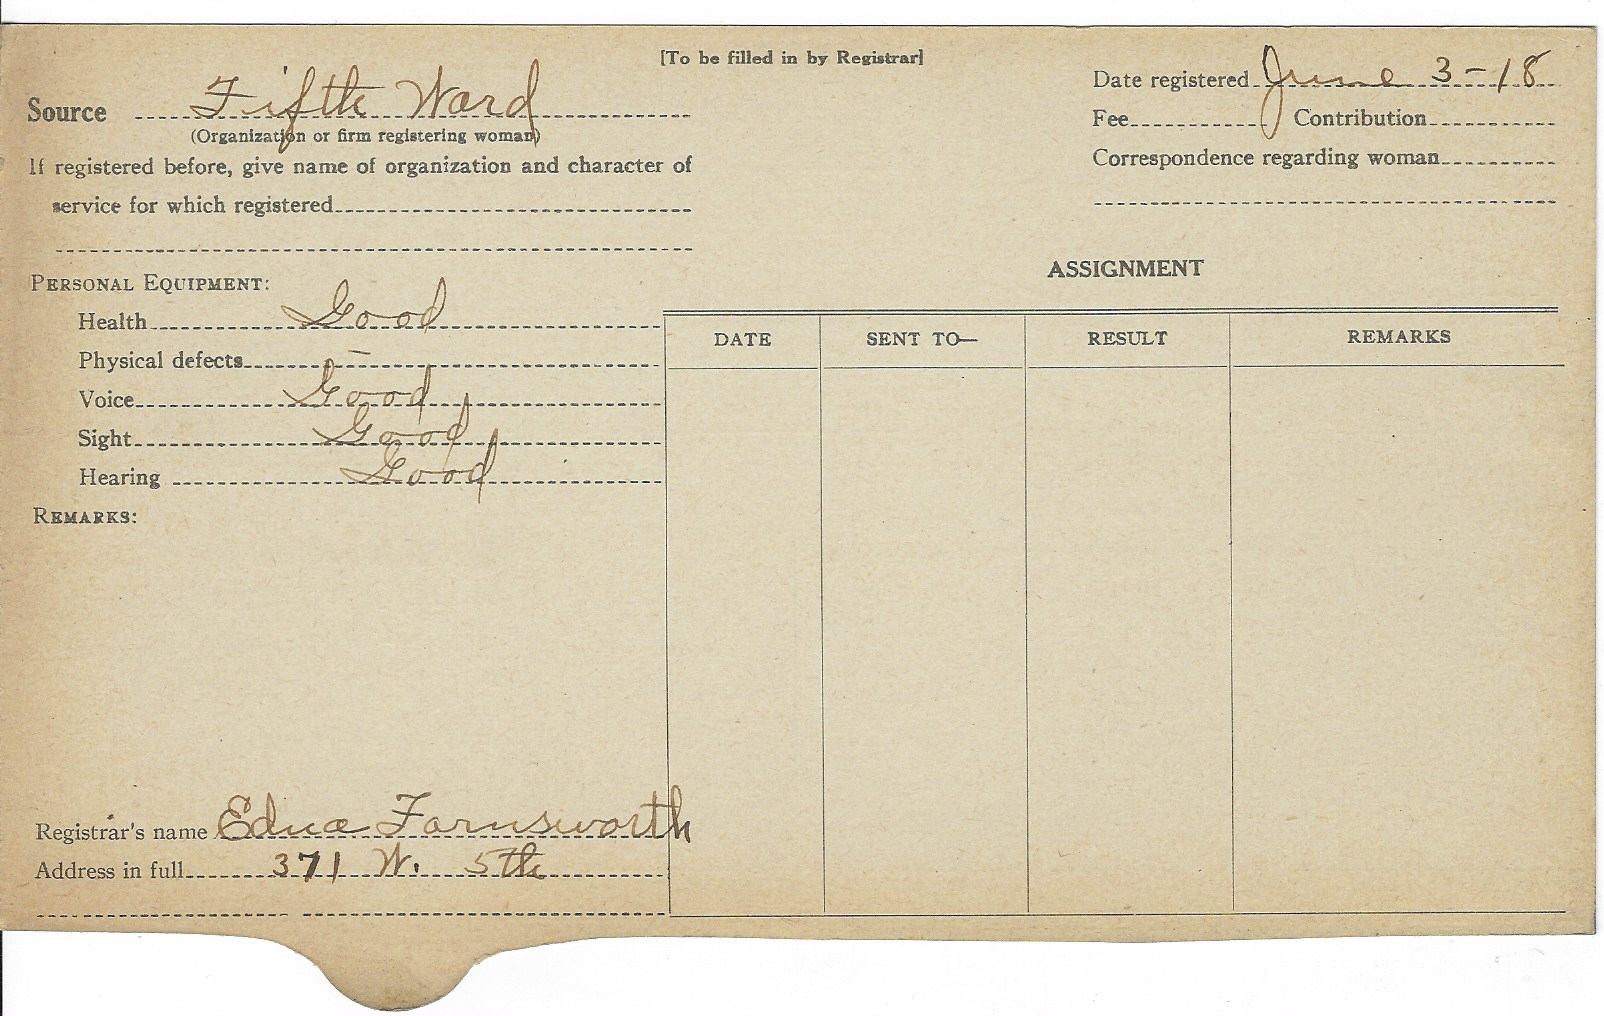 [To be filled in by Registrar]
Source Fifth Ward
(Organization or firm registering woman)
If registered before, give name of organization and character of
service for which registered
Date registered June 3-18
Fee Contribution
Correspondence regarding woman
PERSONAL EQUIPMENT:
Health Good
Physical defects —
Voice Good
Sight Good
Hearing Good
REMARKS:
ASSIGNMENT
DATE SENT TO— RESULT REMARKS
Registrar's name Edna Farnsworth
Address in full 371 W. 5th